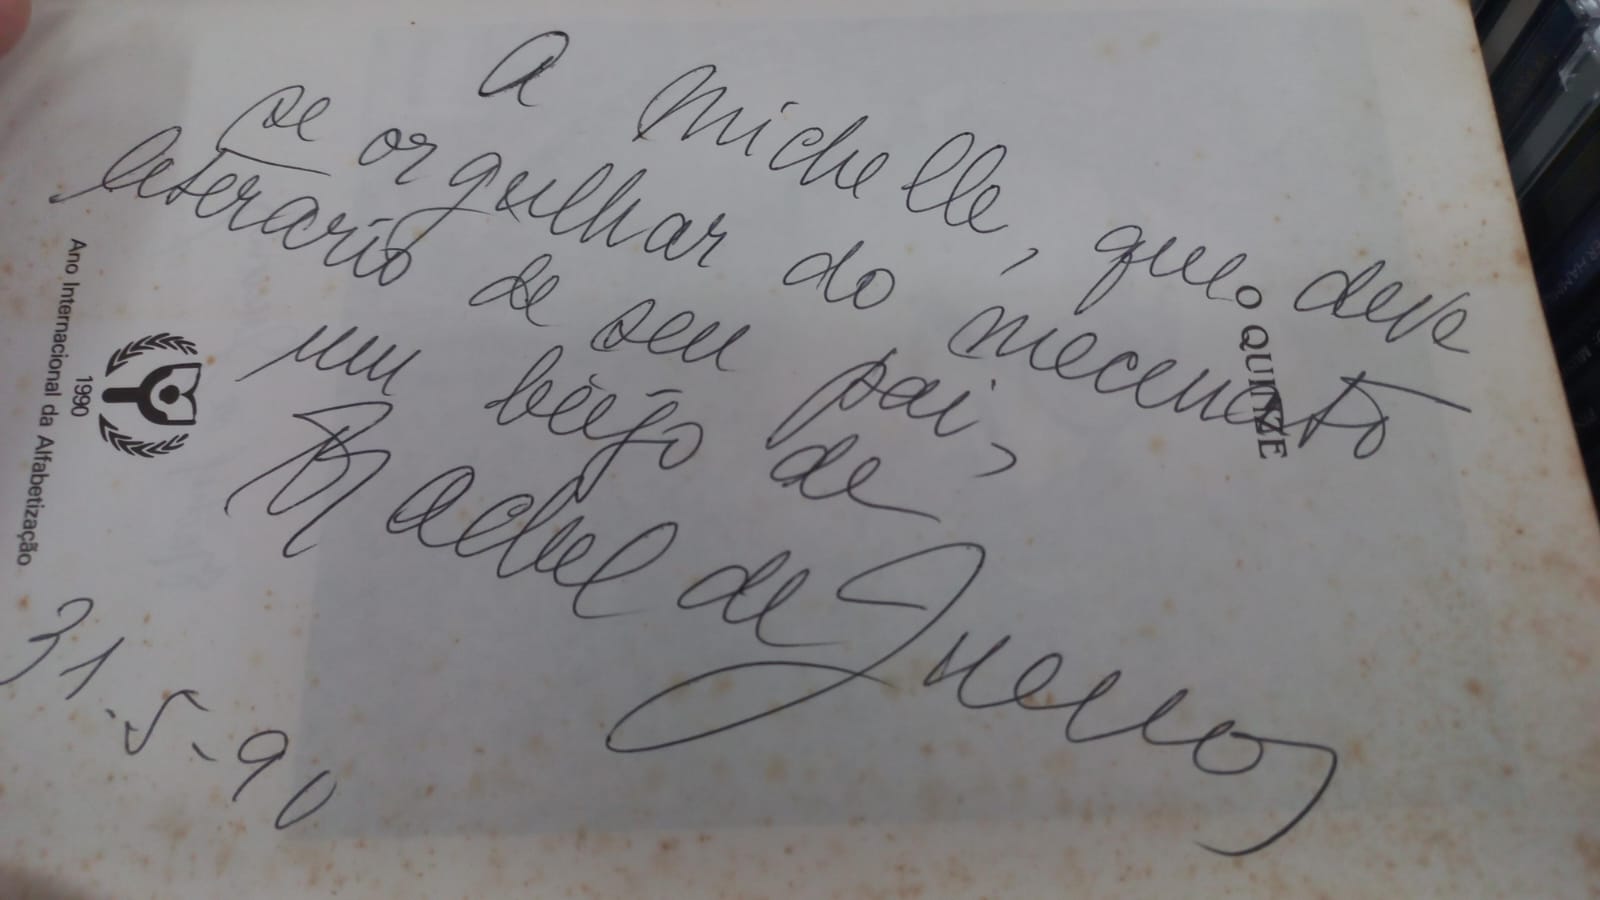 A Michelle, que deve
se orgulhar do mecenato
literario de seu pai,
um beijo de
Rachel de Queiroz
31-5-90
O QUINZE
1990
Ano Internacional da Alfabetização